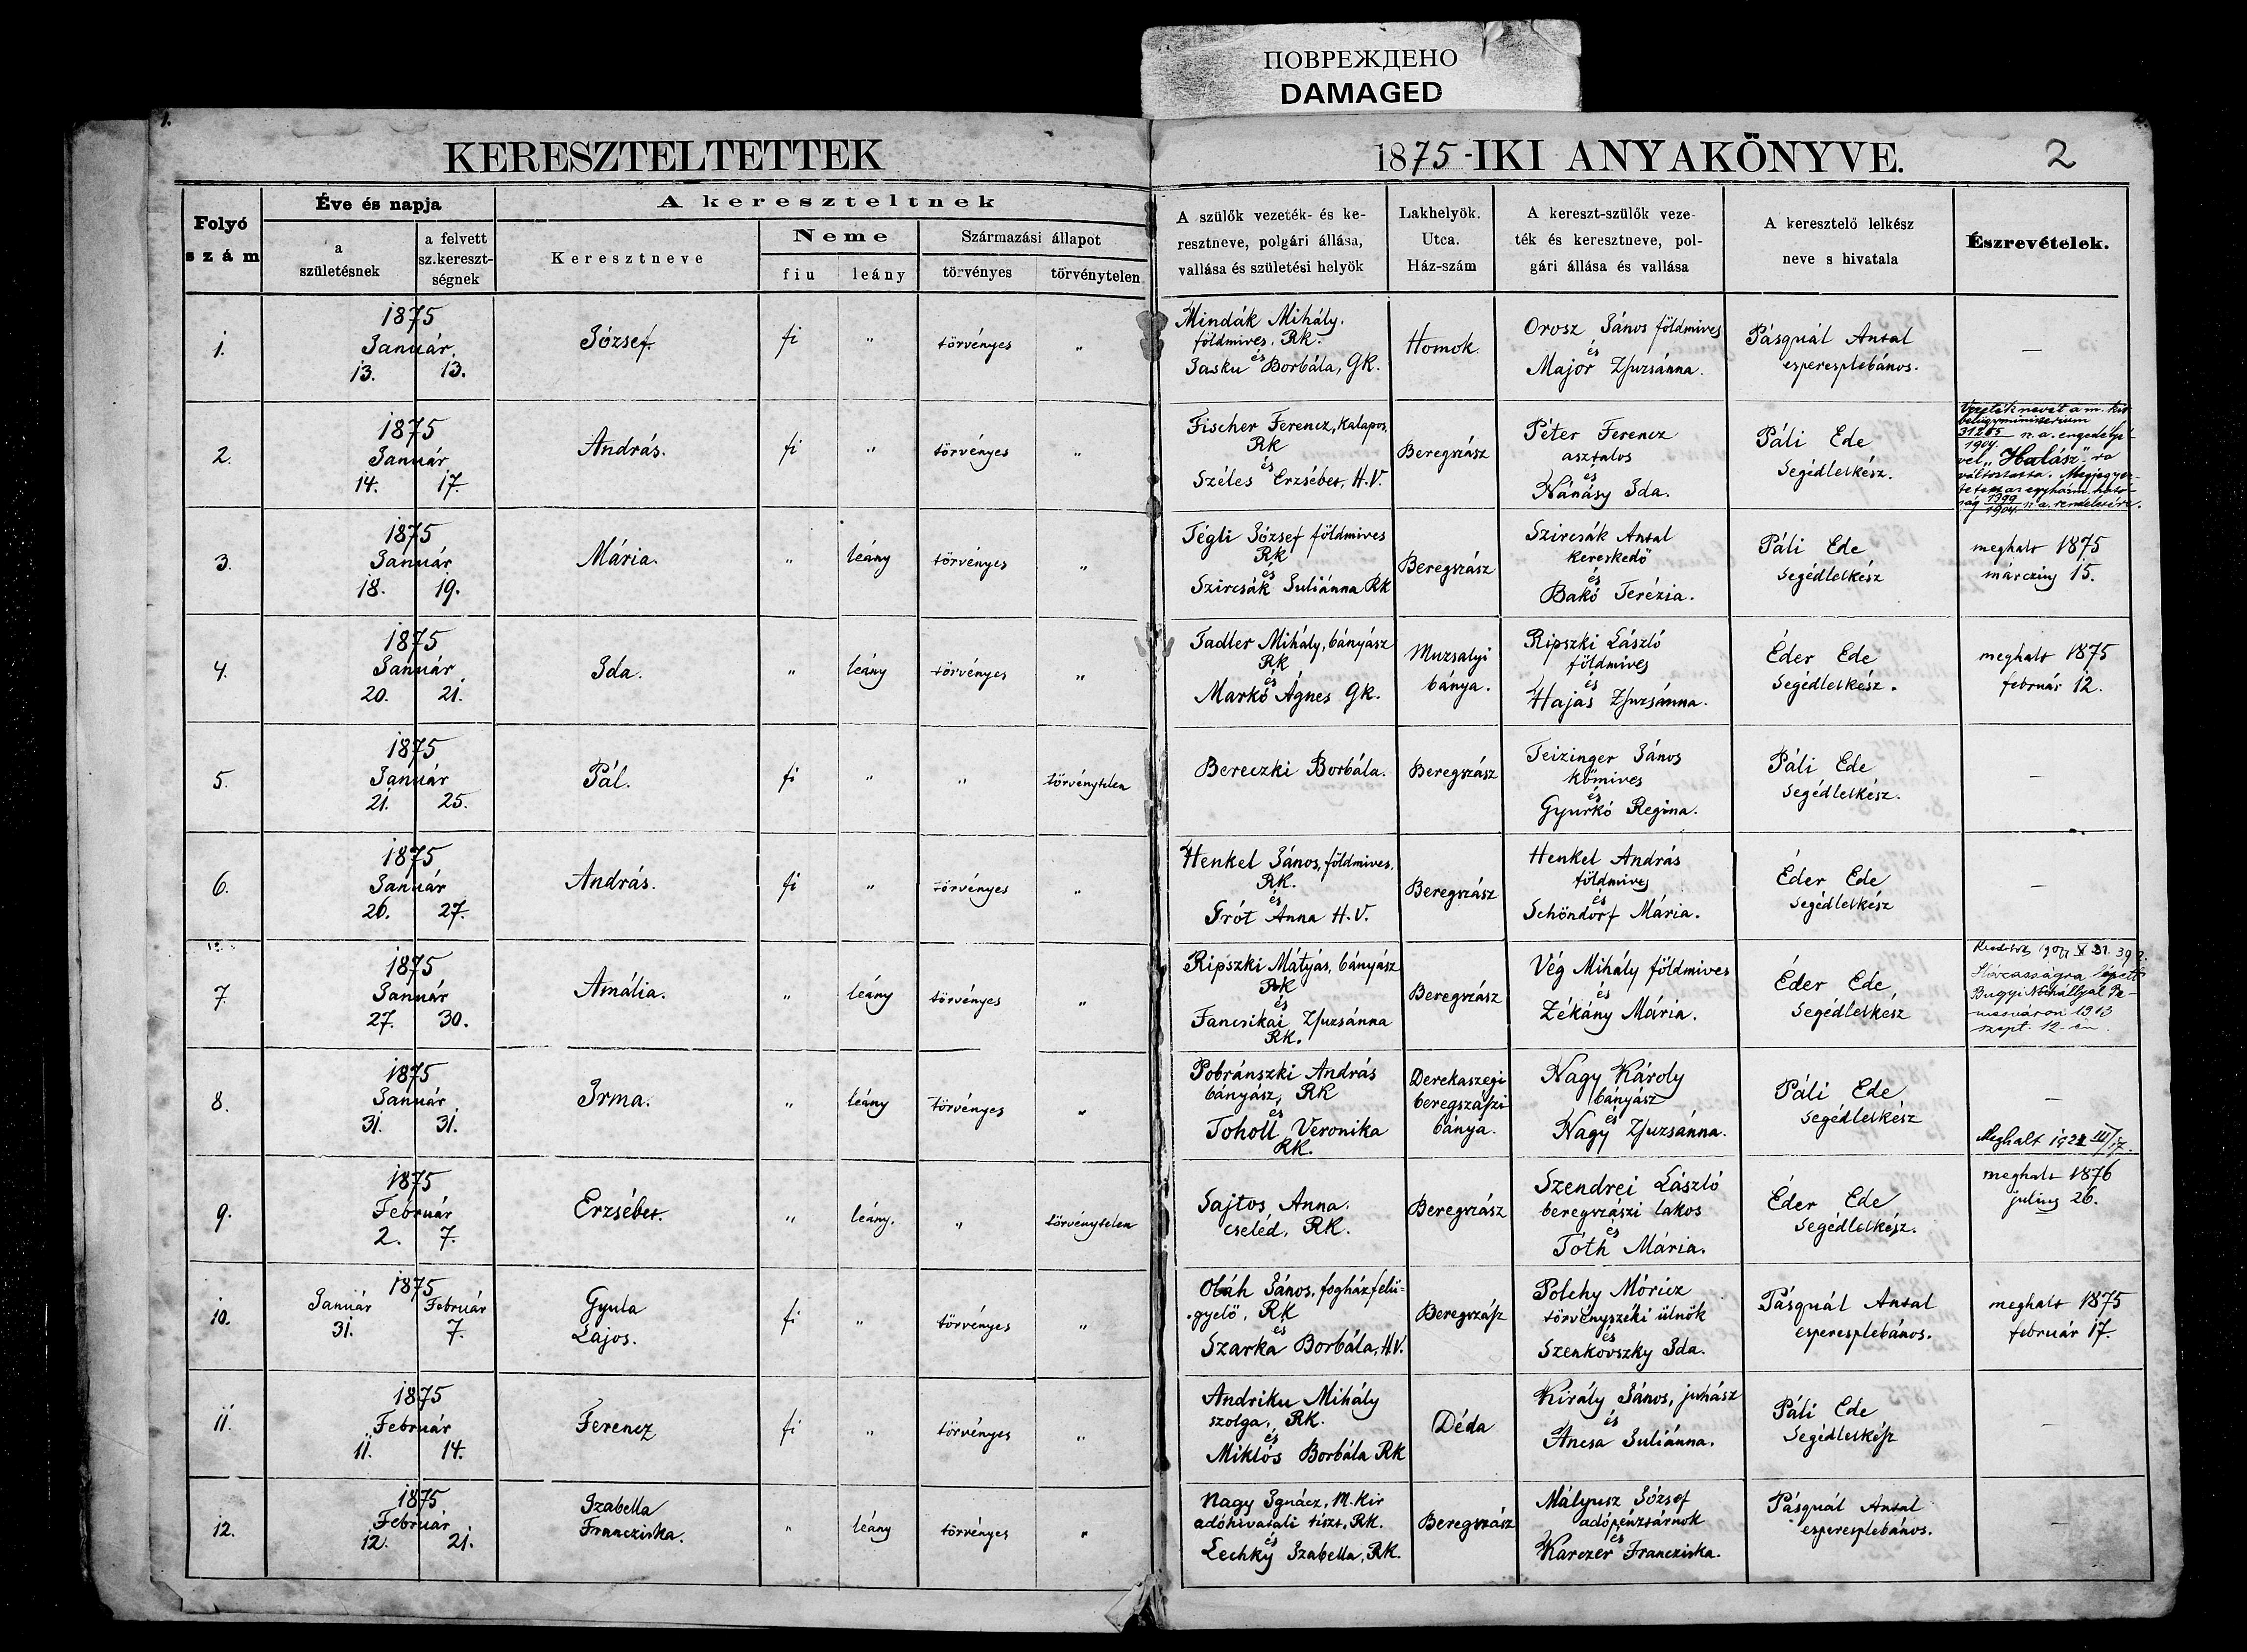 ПОВРЕЖДЕНО
DAMAGED
1.
KERESZTELTETTEK
1875-IKI ANYAKÖNYVE.
2
Folyó
szám
Éve és napja
a
születésnek
a felvett
sz.kereszt-
ségnek
A kereszteltnek
Keresztneve
Neme
fiu
leány
Származási állapot
törvényes
törvénytelen
A szülők vezeték- és ke-
resztneve, polgári állása,
vallása és születési helyök
Lakhelyök.
Utca.
Ház-szám
A kereszt-szülők veze-
ték és keresztneve, pol-
gári állása és vallása
A keresztelő lelkész
neve s hivatala
Észrevételek.
1.
1875
Január.
13. 13.
József.
fi
"
törvényes
"
Mindák Mihály.
földmives, Rk.
és
Jasku Borbála, Gk.
Homok.
Orosz János földmives
és
Major Zsuzsánna.
Pásquál Antal
esperesplébános.
—
2.
1875
Január
14. 17.
András.
fi
"
törvényes
"
Fischer Ferencz, Kalapos,
Rk
és
Széles Erzsébet, H.V.
Beregszász
Péter Ferencz
asztalos
és
Nánásy Ida.
Páli Ede
Segédlelkész.
Vezeték nevét a m. kir
belügyministerium
31265
1904. n. a. engedélyé-
vel "Halász"-ra
változtatta. Megjegyez-
tetett az egyházm. ható-
ság 1999
1904. n. a. rendeletére.
3.
1875
Január
18. 19.
Mária.
"
leány
törvényes
"
Tégli József földmives
Rk
és
Szircsák Juliánna Rk
Beregszász
Szircsák Antal
kereskedő
és
Bakó Terézia.
Páli Ede
Segédlelkész
meghalt 1875
márczius 15.
4.
1875
Január
20. 21.
Ida.
"
leány
törvényes
"
Tadler Mihály, bányász
Rk
és
Markó Ágnes Gk.
Muzsalyi
bánya.
Ripszki László
földmives
és
Hajas Zsuzsánna.
Éder Ede
Segédlelkész.
meghalt 1875
február 12.
5.
1875
Január
21. 25.
Pál.
fi
"
"
törvénytelen
Bereczki Borbála.
Beregszász
Teizinger János
kőmives
és
Gyurkó Regina.
Páli Ede
Segédlelkész.
—
6.
1875
Január
26. 27.
András.
fi
"
törvényes
"
Henkel János, földmives.
Rk.
és
Trót Anna H.V.
Beregszász
Henkel András
földmives
és
Schöndorf Mária.
Éder Ede
Segédlelkész
—
7.
1875
Január
27. 30.
Amália.
"
leány
törvényes
"
Ripszki Mátyás, bányász
Rk
és
Fancsikai Zsuzsánna
Rk.
Beregszász
Vég Mihály földmives
és
Zékány Mária.
Éder Ede
Segédlelkész
Házasságra lépett
Bugyi Mihállyal Te-
mesváron 1913
szept. 12-én.
8.
1875
Január
31. 31.
Irma.
"
leány
törvényes
"
Pobránszki András
bányász, Rk
és
Toholl Veronika
Rk.
Derekaszegi
beregszászi
bánya.
Nagy Károly
bányász
és
Nagy Zsuzsánna.
Páli Ede
Segédlelkész
—
Meghalt 1921 III/17.
9.
1875
Február
2. 7.
Erzsébet.
"
leány.
"
törvénytelen
Sajtos Anna.
cseléd, Rk.
Beregszász
Szendrei László
beregszászi lakos
és
Tóth Mária.
Éder Ede
Segédlelkész.
meghalt 1876
julius 26.
10.
1875
Január Február
31. 7.
Gyula
Lajos.
fi
"
törvényes
"
Oláh János, fogházfelü-
gyelő, Rk
és
Szarka Borbála, H.V.
Beregszász
Polchy Móricz
törvényszéki ülnök
és
Szenkovszky Ida.
Pásquál Antal
esperesplébános.
meghalt 1875
február 17.
11.
1875
Február
11. 14.
Ferencz
fi
"
törvényes
"
Andriku Mihály
szolga, Rk.
és
Miklós Borbála Rk
Déda
Király János, juhász
és
Ancsa Juliánna.
Páli Ede
Segédlelkész
—
12.
1875
Február
12. 21.
Izabella
Francziska.
"
leány
törvényes
"
Nagy Ignácz, M. Kir
adóhivatali tiszt, Rk.
és
Lechky Izabella, Rk.
Beregszász
Mályusz József
adópénztárnok
és
Karczer Francziska.
Pásquál Antal
esperesplébános.
—